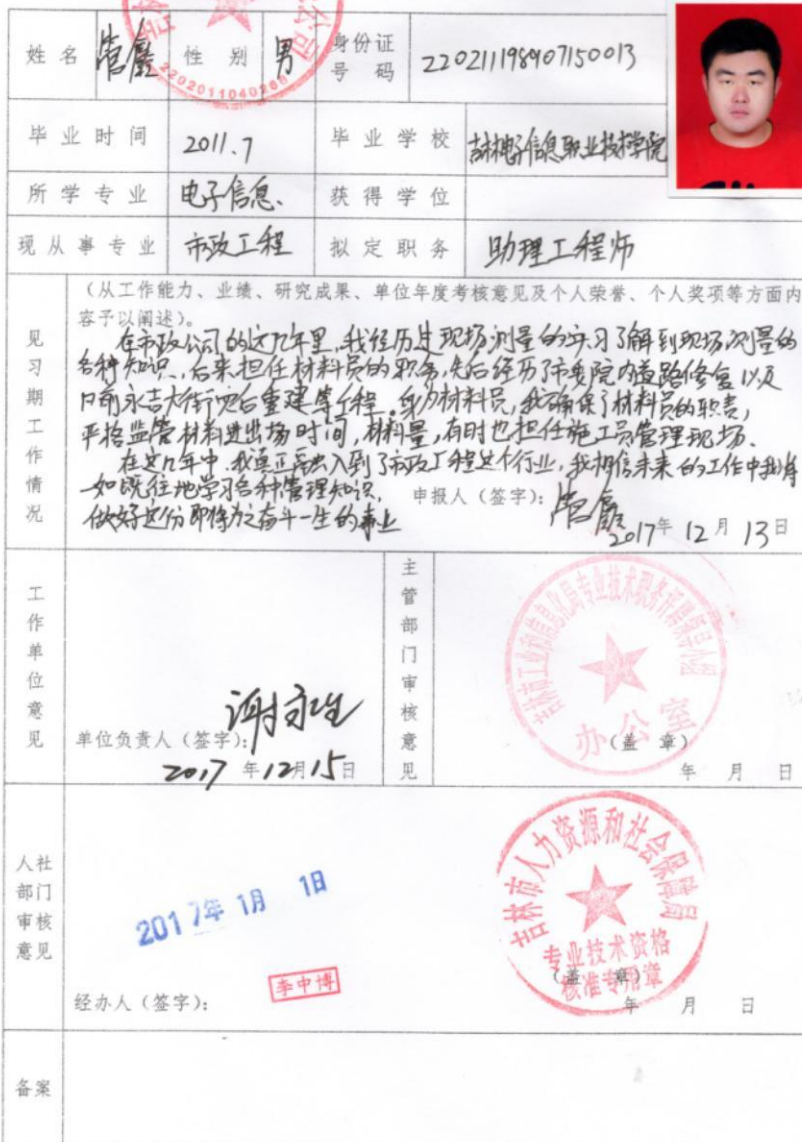 姓名 管鑫 性别 男 身份证号码 220211198907150013
2202011040288
毕业时间 2011.7 毕业学校 吉林电子信息职业技术学院
所学专业 电子信息、 获得学位
现从事专业 市政工程 拟定职务 助理工程师
见习期工作情况
(从工作能力、业绩、研究成果、单位年度考核意见及个人荣誉、个人奖项等方面内
容予以阐述)。
在市政公司的这几年里,我经历过现场测量的实习了解到现场测量的
各种知识,后来担任材料员的职务,先后经历了市委院内道路修复以及
口前永吉大街灾后重建等工程。身为材料员,我确保了材料员的职责,
严格监管材料进出场时间,材料量,有时也担任施工员管理现场、
在这几年中,我真正融入到了市政工程这个行业,我相信未来的工作中我将
一如既往地学习各种管理知识,
申报人(签字): 管鑫
做好这份即将为之奋斗一生的事业
2017年 12月 13日
工作单位意见
单位负责人(签字):
2017年12月15日
主管部门审核意见
办公室
(盖 章)
年 月 日
人社部门审核意见
2017年 1月 1日
李中博
经办人(签字):
吉林市人力资源和社会保障局
专业技术资格
核准专用章
(盖 章)
年 月 日
备案